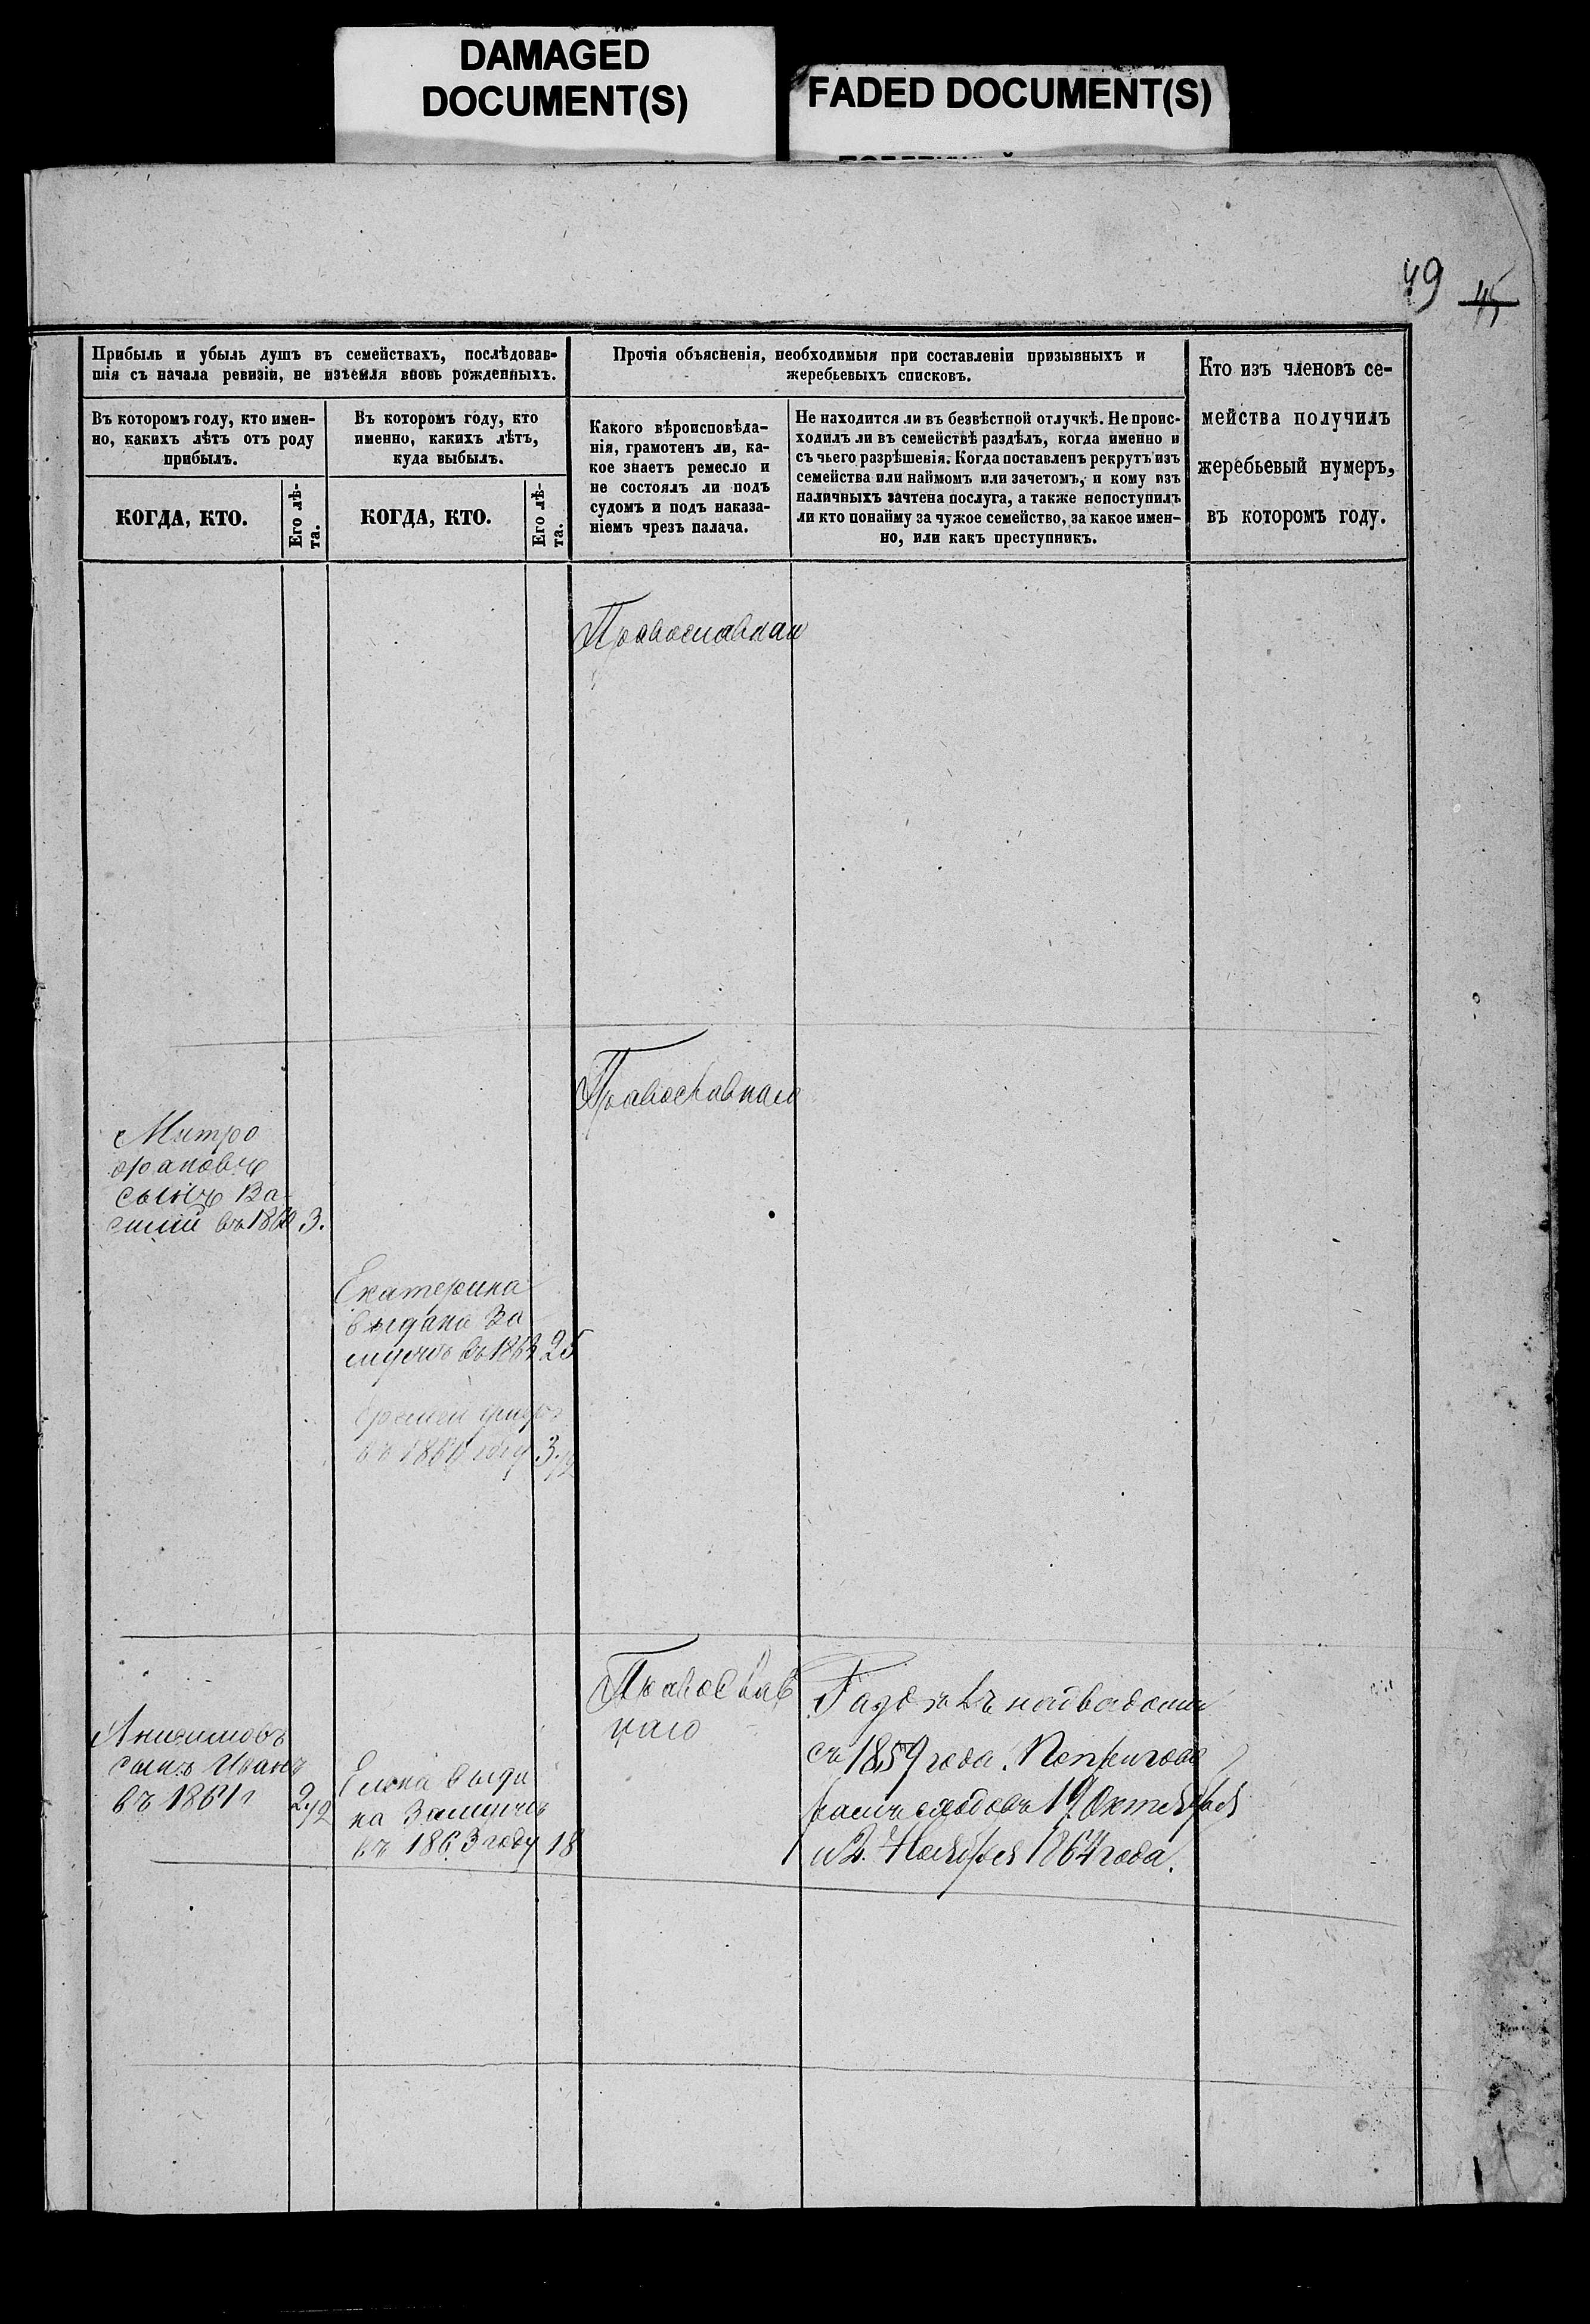 DAMAGED
DOCUMENT(S)
FADED DOCUMENT(S)
49 45
Прибыль и убыль душъ въ семействахъ, послѣдовав-
шія съ начала ревизіи, не изъемля вновь рожденныхъ.
Въ которомъ году, кто имен-
но, какихъ лѣтъ отъ роду
прибылъ.
Въ которомъ году, кто
именно, какихъ лѣтъ,
куда выбылъ.
КОГДА, КТО.
Его лѣ-
та.
КОГДА, КТО.
Его лѣ-
та.
Прочія объясненія, необходимыя при составленіи призывныхъ и
жеребьевыхъ списковъ.
Какого вѣроисповѣда-
нія, грамотенъ ли, ка-
кое знаетъ ремесло и
не состоялъ ли подъ
судомъ и подъ наказа-
ніемъ чрезъ палача.
Не находится ли въ безвѣстной отлучкѣ. Не проис-
ходилъ ли въ семействѣ раздѣлъ, когда именно и
съ чьего разрѣшенія. Когда поставленъ рекрутъ изъ
семейства или наймомъ или зачетомъ, и кому изъ
наличныхъ зачтена послуга, а также непоступилъ
ли кто понайму за чужое семейство, за какое имен-
но, или какъ преступникъ.
Кто изъ членовъ се-
мейства получилъ
жеребьевый нумеръ,
въ которомъ году.
Православнаго
Православнаго
Митро
фановъ
сынъ Ва-
силій въ 3.
Екатерина
выдана За
мужъ въ 25
въ 3
Православ
наго
съ 1859 года.
19 Октября
и 2. Ноября 1864 года.
Анисимовъ
сынъ Иванъ
въ 1861 г 2 1/2
Елена выда
на Замужъ
въ 1863 году 18